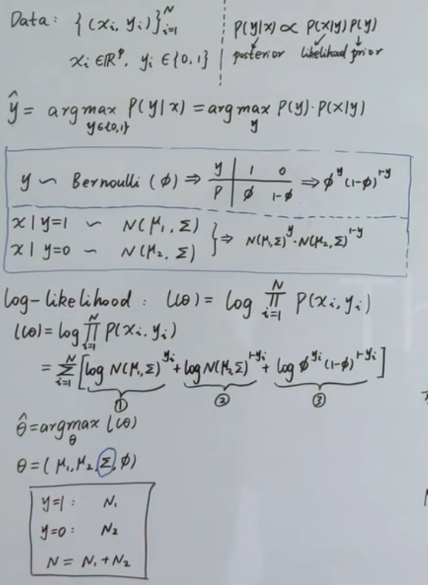 Data: {(xᵢ, yᵢ)}ᵢ₌₁ᴺ
xᵢ ∈ ℝᵖ, yᵢ ∈ {0,1}
P(y|x) ∝ P(x|y)P(y)
posterior likelihood prior
ŷ = argmax_{y∈{0,1}} P(y|x) = argmax_y P(y)·P(x|y)
y ~ Bernoulli(φ) ⇒ y | 1 0 ⇒ φʸ(1-φ)¹⁻ʸ
P | φ 1-φ
x|y=1 ~ N(μ₁, Σ)
x|y=0 ~ N(μ₂, Σ)
} ⇒ N(μ₁,Σ)ʸ·N(μ₂,Σ)¹⁻ʸ
log-likelihood: l(θ) = log ∏ᵢ₌₁ᴺ P(xᵢ, yᵢ)
l(θ) = log ∏ᵢ₌₁ᴺ P(xᵢ, yᵢ)
= Σᵢ₌₁ᴺ [log N(μ₁,Σ)^{yᵢ} + log N(μ₂,Σ)^{1-yᵢ} + log φ^{yᵢ}(1-φ)^{1-yᵢ}]
① ② ③
θ̂ = argmax_θ l(θ)
θ = (μ₁, μ₂, Σ, φ)
y=1: N₁
y=0: N₂
N = N₁ + N₂